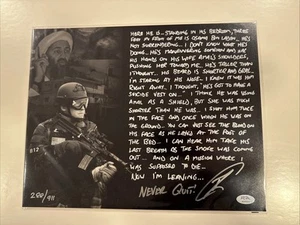 HERE HE IS - STANDING IN HIS BEDROOM, THREE
FEET IN FRONT OF ME IS OSAMA BIN LADEN. HE'S
NOT SURRENDERING. I DON'T KNOW WHAT HE'S
DOING. HE'S MANEUVERING SOMEHOW AND HAS
HIS HANDS ON HIS WIFE AMAL'S SHOULDERS,
PUSHING HER TOWARD ME. HE'S TALLER THAN
I THOUGHT. HIS BEARD IS SHORTER AND GREY.
I'M STARING AT HIS NOSE. I KNOW IT WAS HIM
RIGHT AWAY. I THOUGHT, HE'S GOT TO HAVE A
SUICIDE VEST ON... I THINK HE WAS USING
AMAL AS A SHIELD, BUT SHE WAS MUCH
SHORTER THAN HE WAS. I SHOT HIM TWICE
IN THE FACE AND ONCE WHEN HE WAS ON
THE GROUND. YOU CAN JUST SEE THE BLOOD ON
HIS FACE AS HE LAYS AT THE FOOT OF
THE BED... I CAN HEAR HIM TAKE HIS
LAST BREATH AS THE SMOKE WAS COMING
OUT... AND ON A MISSION WHERE I
WAS SUPPOSED TO DIE...
NOW I'M LEAVING...
NEVER QUIT!
200/911